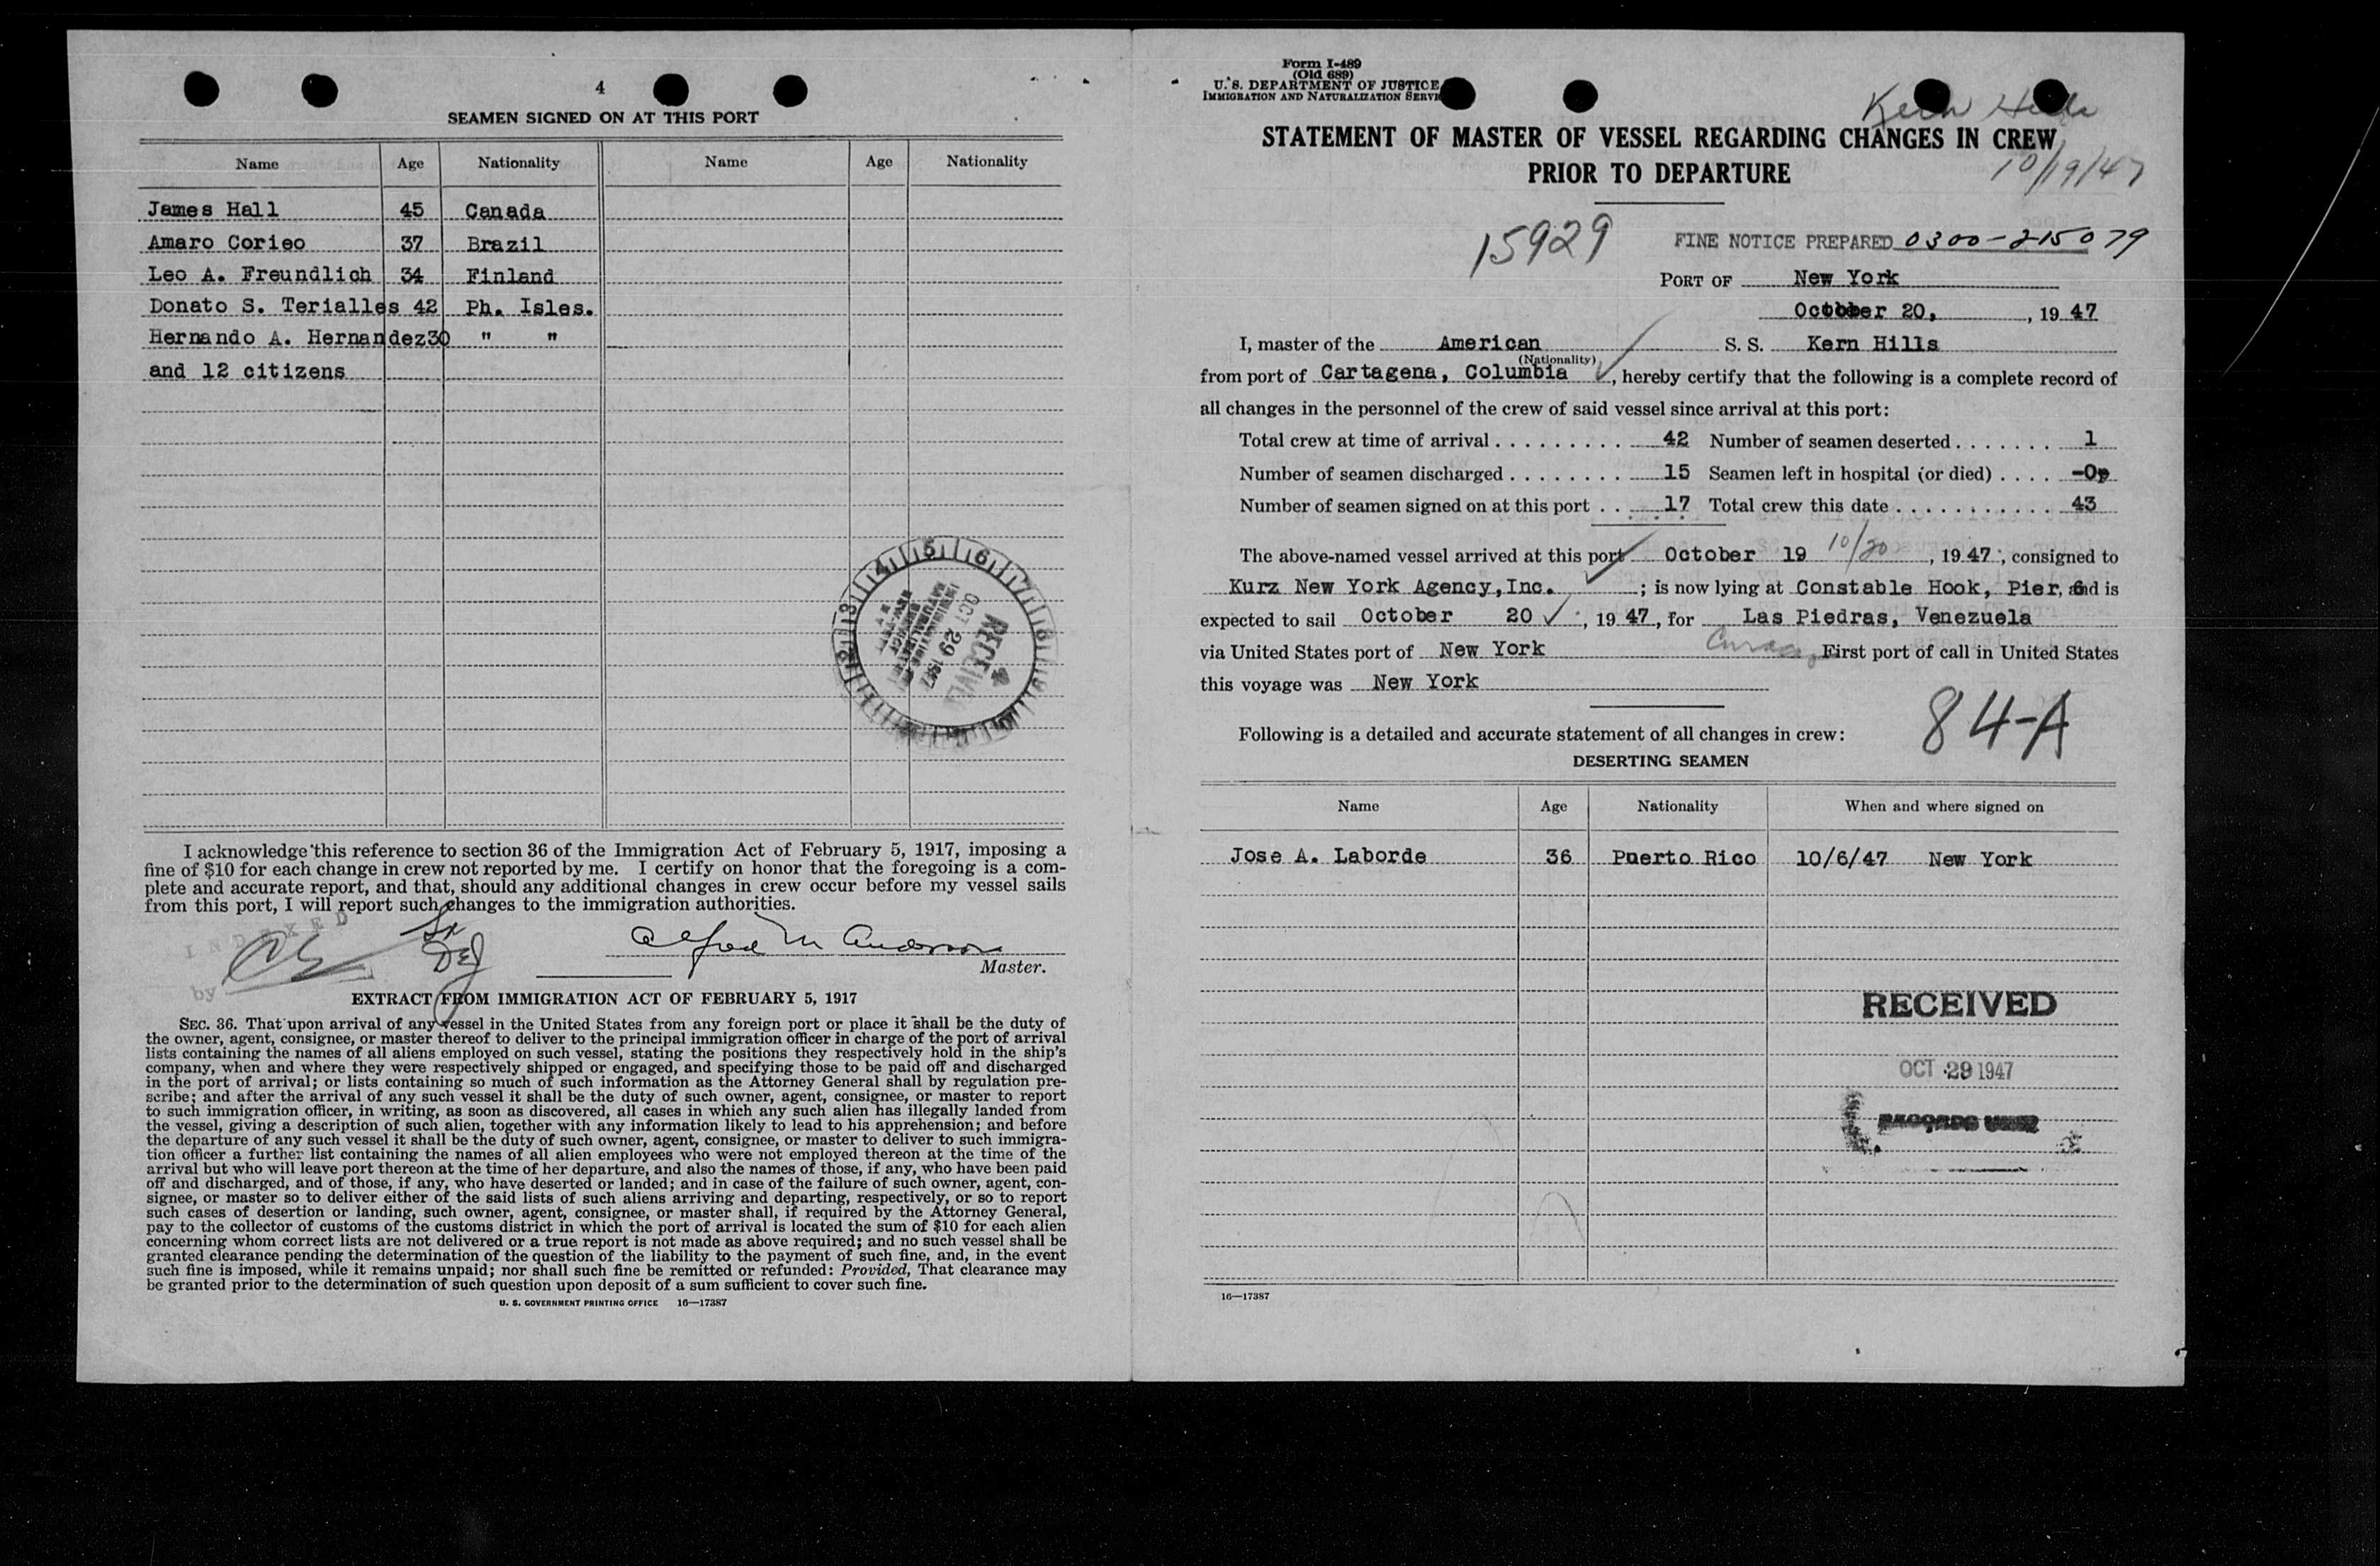 4
SEAMEN SIGNED ON AT THIS PORT
Name Age Nationality Name Age Nationality
James Hall 45 Canada
Amaro Corieo 37 Brazil
Leo A. Freundlich 34 Finland
Donato S. Terialles 42 Ph. Isles.
Hernando A. Hernandez 30 " "
and 12 citizens
RECEIVED
OCT 29 1947
I acknowledge this reference to section 36 of the Immigration Act of February 5, 1917, imposing a
fine of $10 for each change in crew not reported by me. I certify on honor that the foregoing is a com-
plete and accurate report, and that, should any additional changes in crew occur before my vessel sails
from this port, I will report such changes to the immigration authorities.
INDEXED
by
Alfred M Anderson
Master.
EXTRACT FROM IMMIGRATION ACT OF FEBRUARY 5, 1917
SEC. 36. That upon arrival of any vessel in the United States from any foreign port or place it shall be the duty of
the owner, agent, consignee, or master thereof to deliver to the principal immigration officer in charge of the port of arrival
lists containing the names of all aliens employed on such vessel, stating the positions they respectively hold in the ship's
company, when and where they were respectively shipped or engaged, and specifying those to be paid off and discharged
in the port of arrival; or lists containing so much of such information as the Attorney General shall by regulation pre-
scribe; and after the arrival of any such vessel it shall be the duty of such owner, agent, consignee, or master to report
to such immigration officer, in writing, as soon as discovered, all cases in which any such alien has illegally landed from
the vessel, giving a description of such alien, together with any information likely to lead to his apprehension; and before
the departure of any such vessel it shall be the duty of such owner, agent, consignee, or master to deliver to such immigra-
tion officer a further list containing the names of all alien employees who were not employed thereon at the time of the
arrival but who will leave port thereon at the time of her departure, and also the names of those, if any, who have been paid
off and discharged, and of those, if any, who have deserted or landed; and in case of the failure of such owner, agent, con-
signee, or master so to deliver either of the said lists of such aliens arriving and departing, respectively, or so to report
such cases of desertion or landing, such owner, agent, consignee, or master shall, if required by the Attorney General,
pay to the collector of customs of the customs district in which the port of arrival is located the sum of $10 for each alien
concerning whom correct lists are not delivered or a true report is not made as above required; and no such vessel shall be
granted clearance pending the determination of the question of the liability to the payment of such fine, and, in the event
such fine is imposed, while it remains unpaid; nor shall such fine be remitted or refunded: Provided, That clearance may
be granted prior to the determination of such question upon deposit of a sum sufficient to cover such fine.
U. S. GOVERNMENT PRINTING OFFICE 16—17387
Form I-489
(Old 689)
U. S. DEPARTMENT OF JUSTICE
IMMIGRATION AND NATURALIZATION SERVI
Kern Hills
STATEMENT OF MASTER OF VESSEL REGARDING CHANGES IN CREW
PRIOR TO DEPARTURE
10/19/47
15929
FINE NOTICE PREPARED 0300-215079
PORT OF New York
October 20, , 19 47
I, master of the American S. S. Kern Hills
(Nationality)
from port of Cartagena, Columbia , hereby certify that the following is a complete record of
all changes in the personnel of the crew of said vessel since arrival at this port:
Total crew at time of arrival . . . . . . . . . 42 Number of seamen deserted . . . . . . . 1
Number of seamen discharged . . . . . . . . 15 Seamen left in hospital (or died) . . . . -0-
Number of seamen signed on at this port . . 17 Total crew this date . . . . . . . . . . . 43
The above-named vessel arrived at this port October 19 10/20 , 19 47 , consigned to
Kurz New York Agency,Inc. ; is now lying at Constable Hook, Pier, 6 and is
expected to sail October 20 , 19 47 , for Las Piedras, Venezuela
via United States port of New York First port of call in United States
this voyage was New York
84-A
Following is a detailed and accurate statement of all changes in crew:
DESERTING SEAMEN
Name Age Nationality When and where signed on
Jose A. Laborde 36 Puerto Rico 10/6/47 New York
RECEIVED
OCT 29 1947
RECORDS UNIT
16—17387